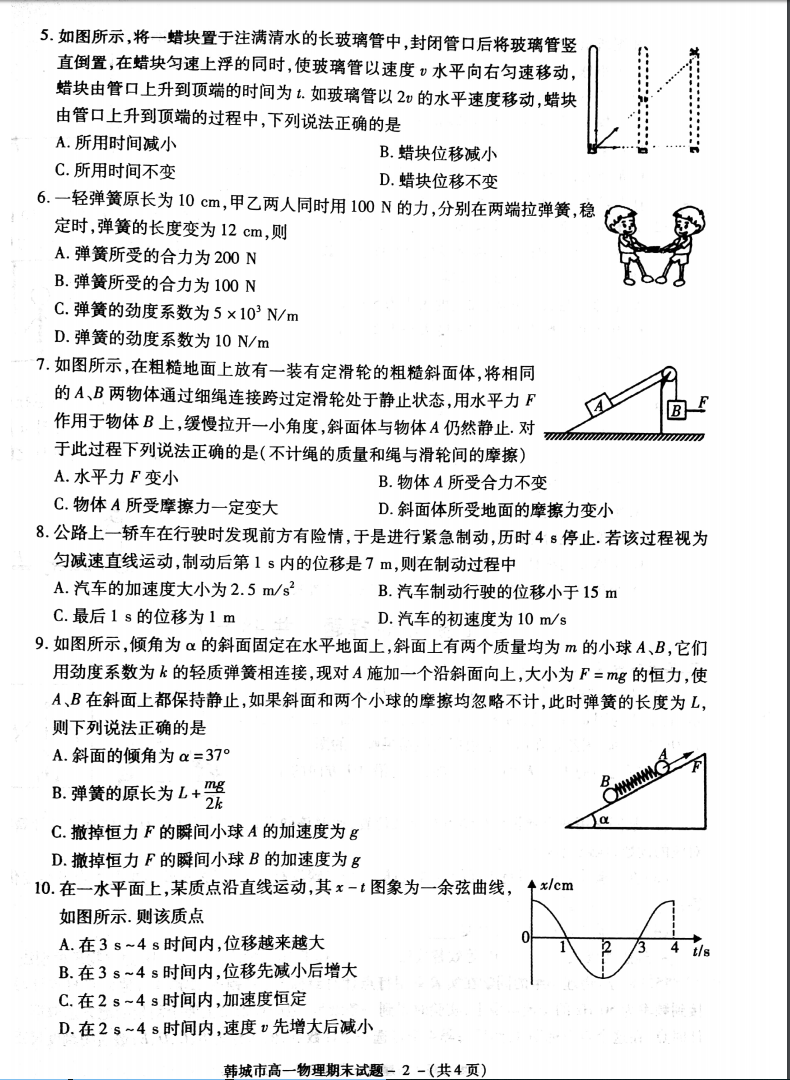 5. 如图所示,将一蜡块置于注满清水的长玻璃管中,封闭管口后将玻璃管竖
直倒置,在蜡块匀速上浮的同时,使玻璃管以速度 v 水平向右匀速移动,
蜡块由管口上升到顶端的时间为 t. 如玻璃管以 2v 的水平速度移动,蜡块
由管口上升到顶端的过程中,下列说法正确的是
A. 所用时间减小
B. 蜡块位移减小
C. 所用时间不变
D. 蜡块位移不变
6. 一轻弹簧原长为 10 cm,甲乙两人同时用 100 N 的力,分别在两端拉弹簧,稳
定时,弹簧的长度变为 12 cm,则
A. 弹簧所受的合力为 200 N
B. 弹簧所受的合力为 100 N
C. 弹簧的劲度系数为 5 × 10³ N/m
D. 弹簧的劲度系数为 10 N/m
7. 如图所示,在粗糙地面上放有一装有定滑轮的粗糙斜面体,将相同
的 A、B 两物体通过细绳连接跨过定滑轮处于静止状态,用水平力 F
作用于物体 B 上,缓慢拉开一小角度,斜面体与物体 A 仍然静止. 对
于此过程下列说法正确的是(不计绳的质量和绳与滑轮间的摩擦)
A
B
F
A. 水平力 F 变小
B. 物体 A 所受合力不变
C. 物体 A 所受摩擦力一定变大
D. 斜面体所受地面的摩擦力变小
8. 公路上一轿车在行驶时发现前方有险情,于是进行紧急制动,历时 4 s 停止. 若该过程视为
匀减速直线运动,制动后第 1 s 内的位移是 7 m,则在制动过程中
A. 汽车的加速度大小为 2.5 m/s²
B. 汽车制动行驶的位移小于 15 m
C. 最后 1 s 的位移为 1 m
D. 汽车的初速度为 10 m/s
9. 如图所示,倾角为 α 的斜面固定在水平地面上,斜面上有两个质量均为 m 的小球 A、B,它们
用劲度系数为 k 的轻质弹簧相连接,现对 A 施加一个沿斜面向上,大小为 F = mg 的恒力,使
A、B 在斜面上都保持静止,如果斜面和两个小球的摩擦均忽略不计,此时弹簧的长度为 L,
则下列说法正确的是
A. 斜面的倾角为 α = 37°
B. 弹簧的原长为 L + mg/2k
C. 撤掉恒力 F 的瞬间小球 A 的加速度为 g
D. 撤掉恒力 F 的瞬间小球 B 的加速度为 g
A
F
B
α
10. 在一水平面上,某质点沿直线运动,其 x - t 图象为一余弦曲线,
如图所示. 则该质点
A. 在 3 s ~ 4 s 时间内,位移越来越大
B. 在 3 s ~ 4 s 时间内,位移先减小后增大
C. 在 2 s ~ 4 s 时间内,加速度恒定
D. 在 2 s ~ 4 s 时间内,速度 v 先增大后减小
x/cm
0
1 2 3 4 t/s
韩城市高一物理期末试题 - 2 - (共 4 页)